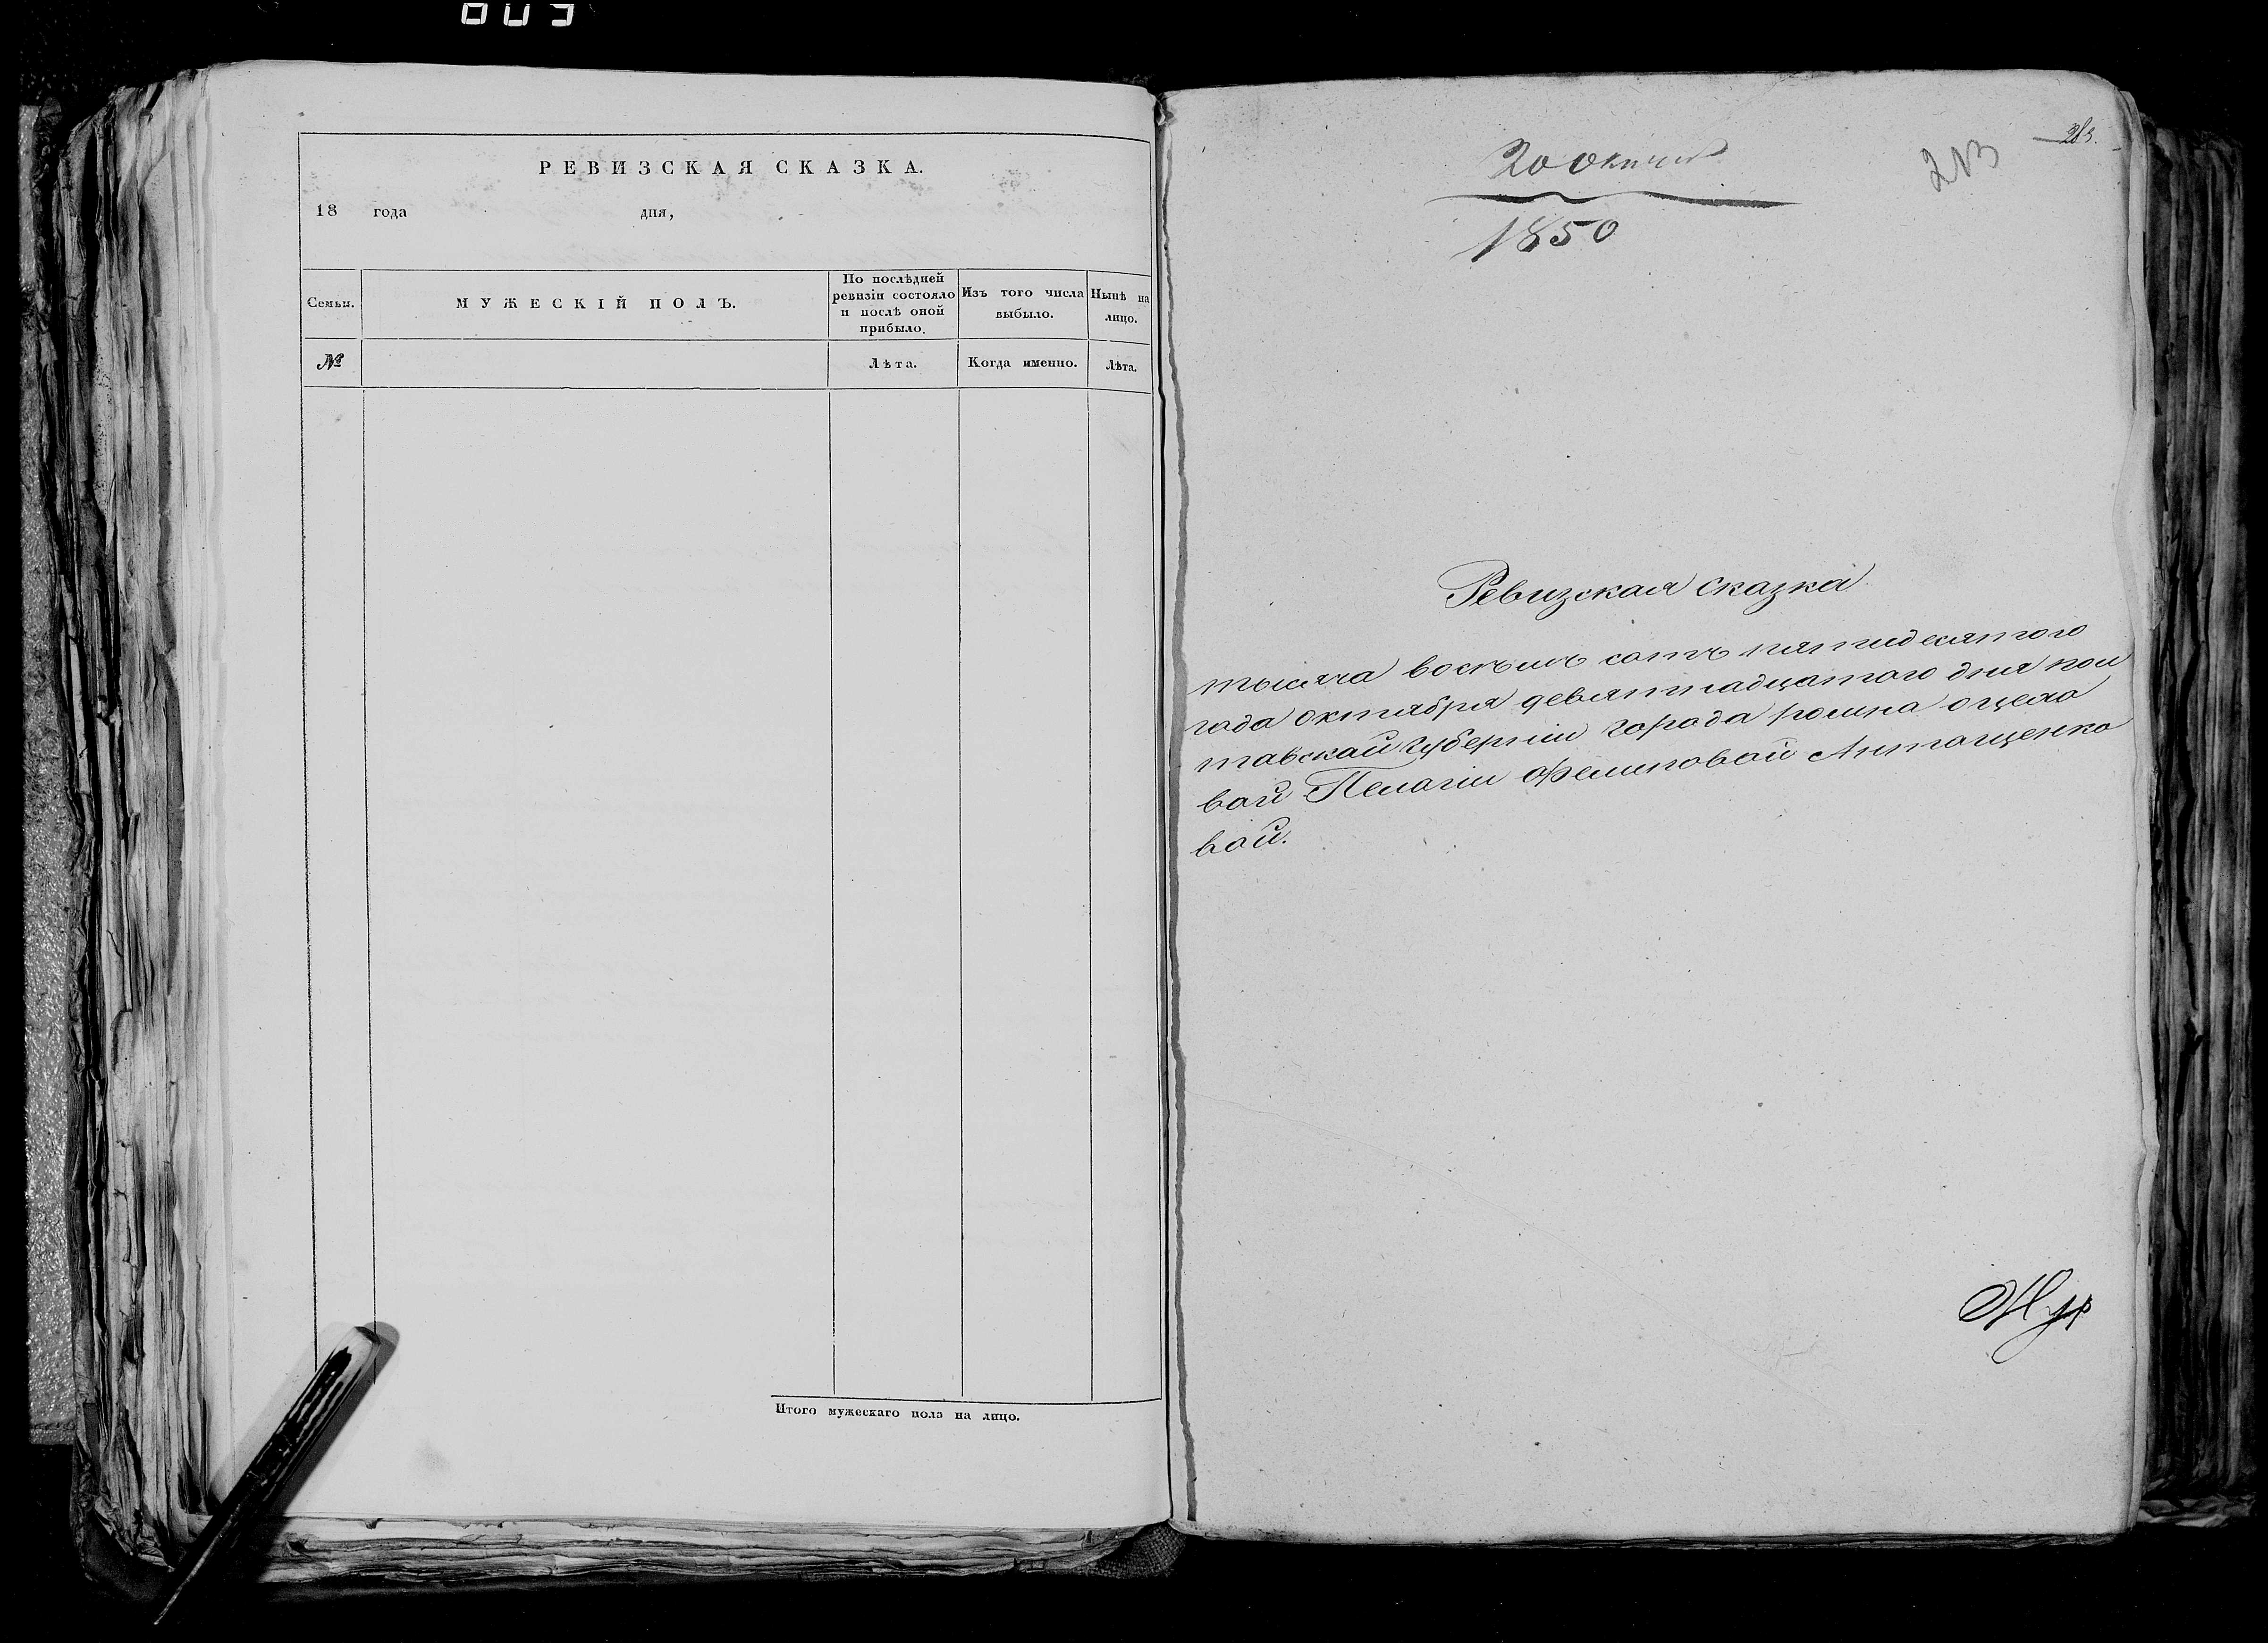 РЕВИЗСКАЯ СКАЗКА.
18 года дня,
Семьи.
МУЖЕСКІЙ ПОЛЪ.
По послѣдней
ревизіи состояло
и послѣ оной
прибыло.
Изъ того числа
выбыло.
Нынѣ на
лицо.
№
Лѣта.
Когда именно.
Лѣта.
Итого мужескаго пола на лицо.
283
20 Октября
1850
Ревизская сказка
тысяча восъмъ сотъ пятидесятого
года октября девятнадцатого дня пол
тавскай губерніи города ромна
вай Пелагіи Антощенко
вай.